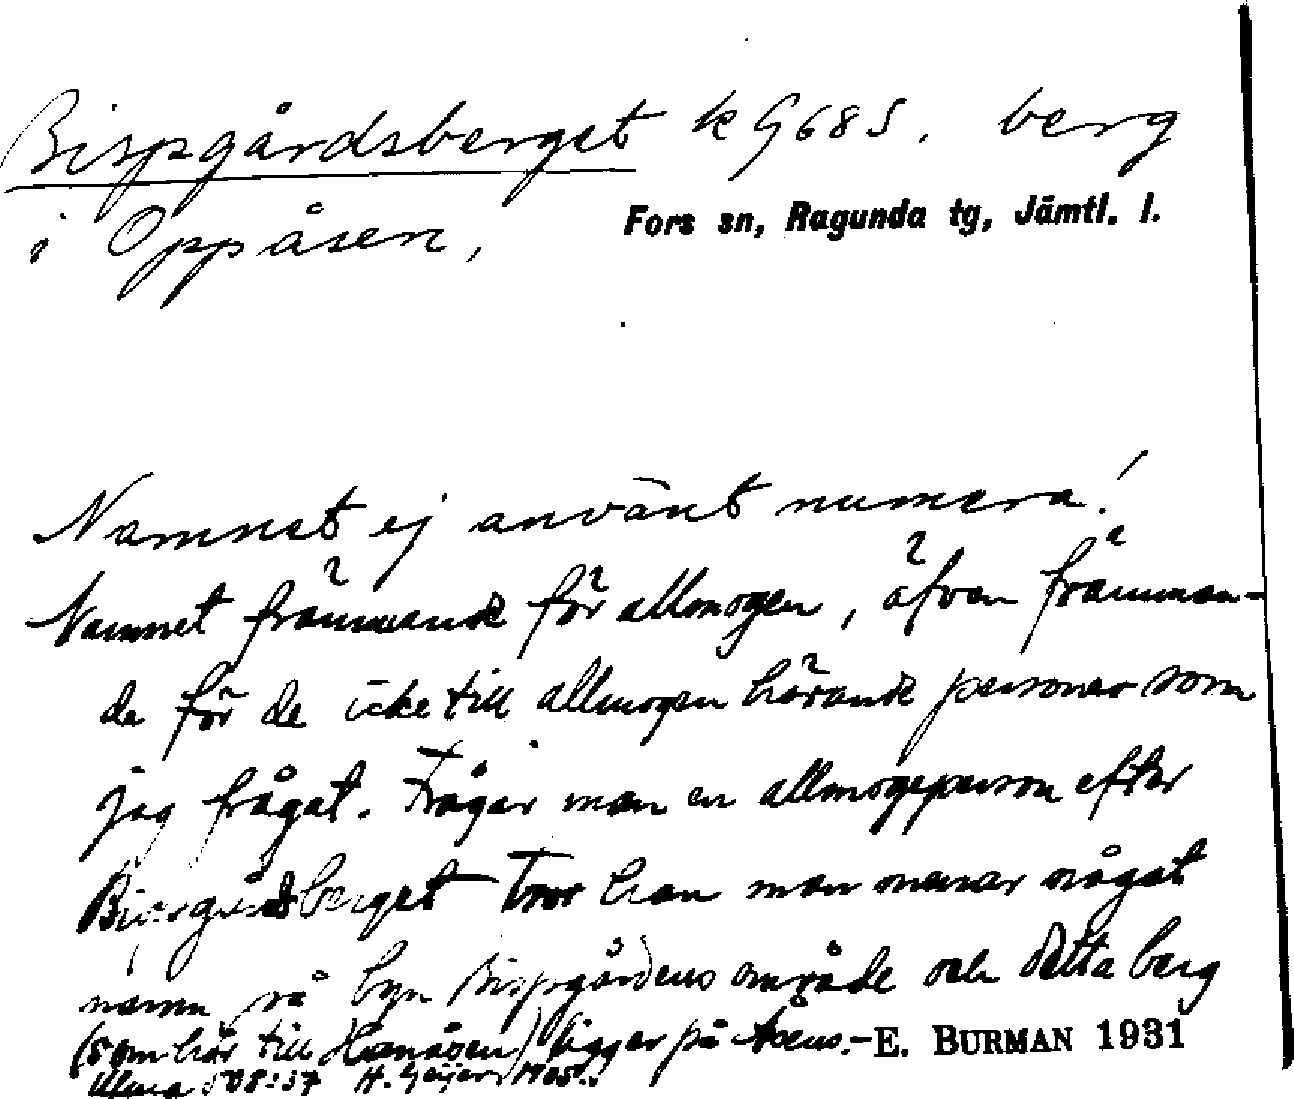 Bispgårdsberget k G68S. berg
i Oppåsen, Fors sn, Ragunda tg, Jämtl. l.
Namnet ej använt numera!
Namnet främmande för allmogen, äfven främman-
de för de icke till allmogen hörande personer som
jag frågat. Frågar man en allmogeperson efter
Bispgårdsberget tror han man menar något
namn på byn Bispgårdens område och detta berg
(som hör till ) ligger på Åsens.- E. BURMAN 1931
Ulma 508:37 H. Geijer 1905.